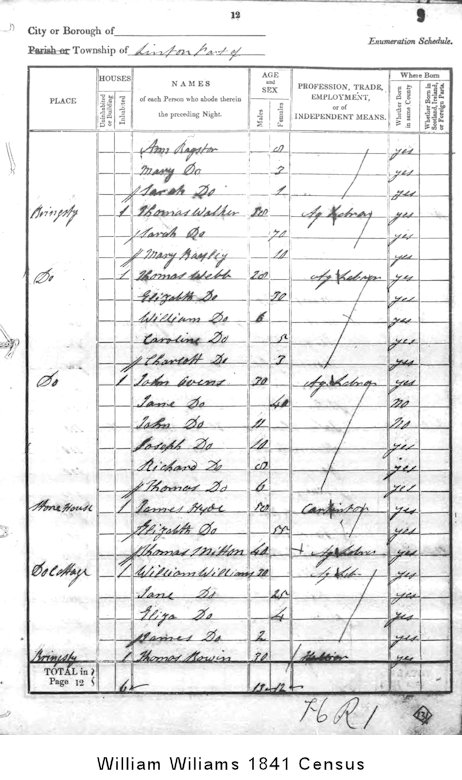 12
9
City or Borough of
Parish or Township of Linton Part of
Enumeration Schedule.
PLACE
HOUSES
Uninhabited or Building
Inhabited
NAMES
of each Person who abode therein
the preceding Night.
AGE
and
SEX
Males
Females
PROFESSION, TRADE,
EMPLOYMENT,
or of
INDEPENDENT MEANS.
Where Born
Whether Born in same County
Whether Born in Scotland, Ireland, or Foreign Parts.
Ann yes
Mary Do 3 yes
Sarah Do 1 yes
Bringsty 1 Thomas Walker 80 Ag Labrer yes
Sarah Do 70 yes
Mary 10 yes
Do 1 Thomas Webb 28 Ag Labrer yes
Elizabeth Do 30 yes
William Do 6 yes
Caroline Do 5 yes
Charlott Do 3 yes
Do 1 John Evens 30 Ag Labrer yes
Jane Do 40 No
John Do 11 No
Joseph Do 10 yes
Richard Do 8 yes
Thomas Do 6 yes
House 1 James Hyde 50 yes
Elizabeth Do 55 yes
Thomas Mitton 40 Ag Labrer yes
Do Cottage 1 William Williams 30 Ag Lab yes
Jane Do 25 yes
Eliza Do 4 yes
James Do 2 yes
Bringsty 1 Thomas 30 yes
TOTAL in
Page 12
6 13 12
William Wiliams 1841 Census